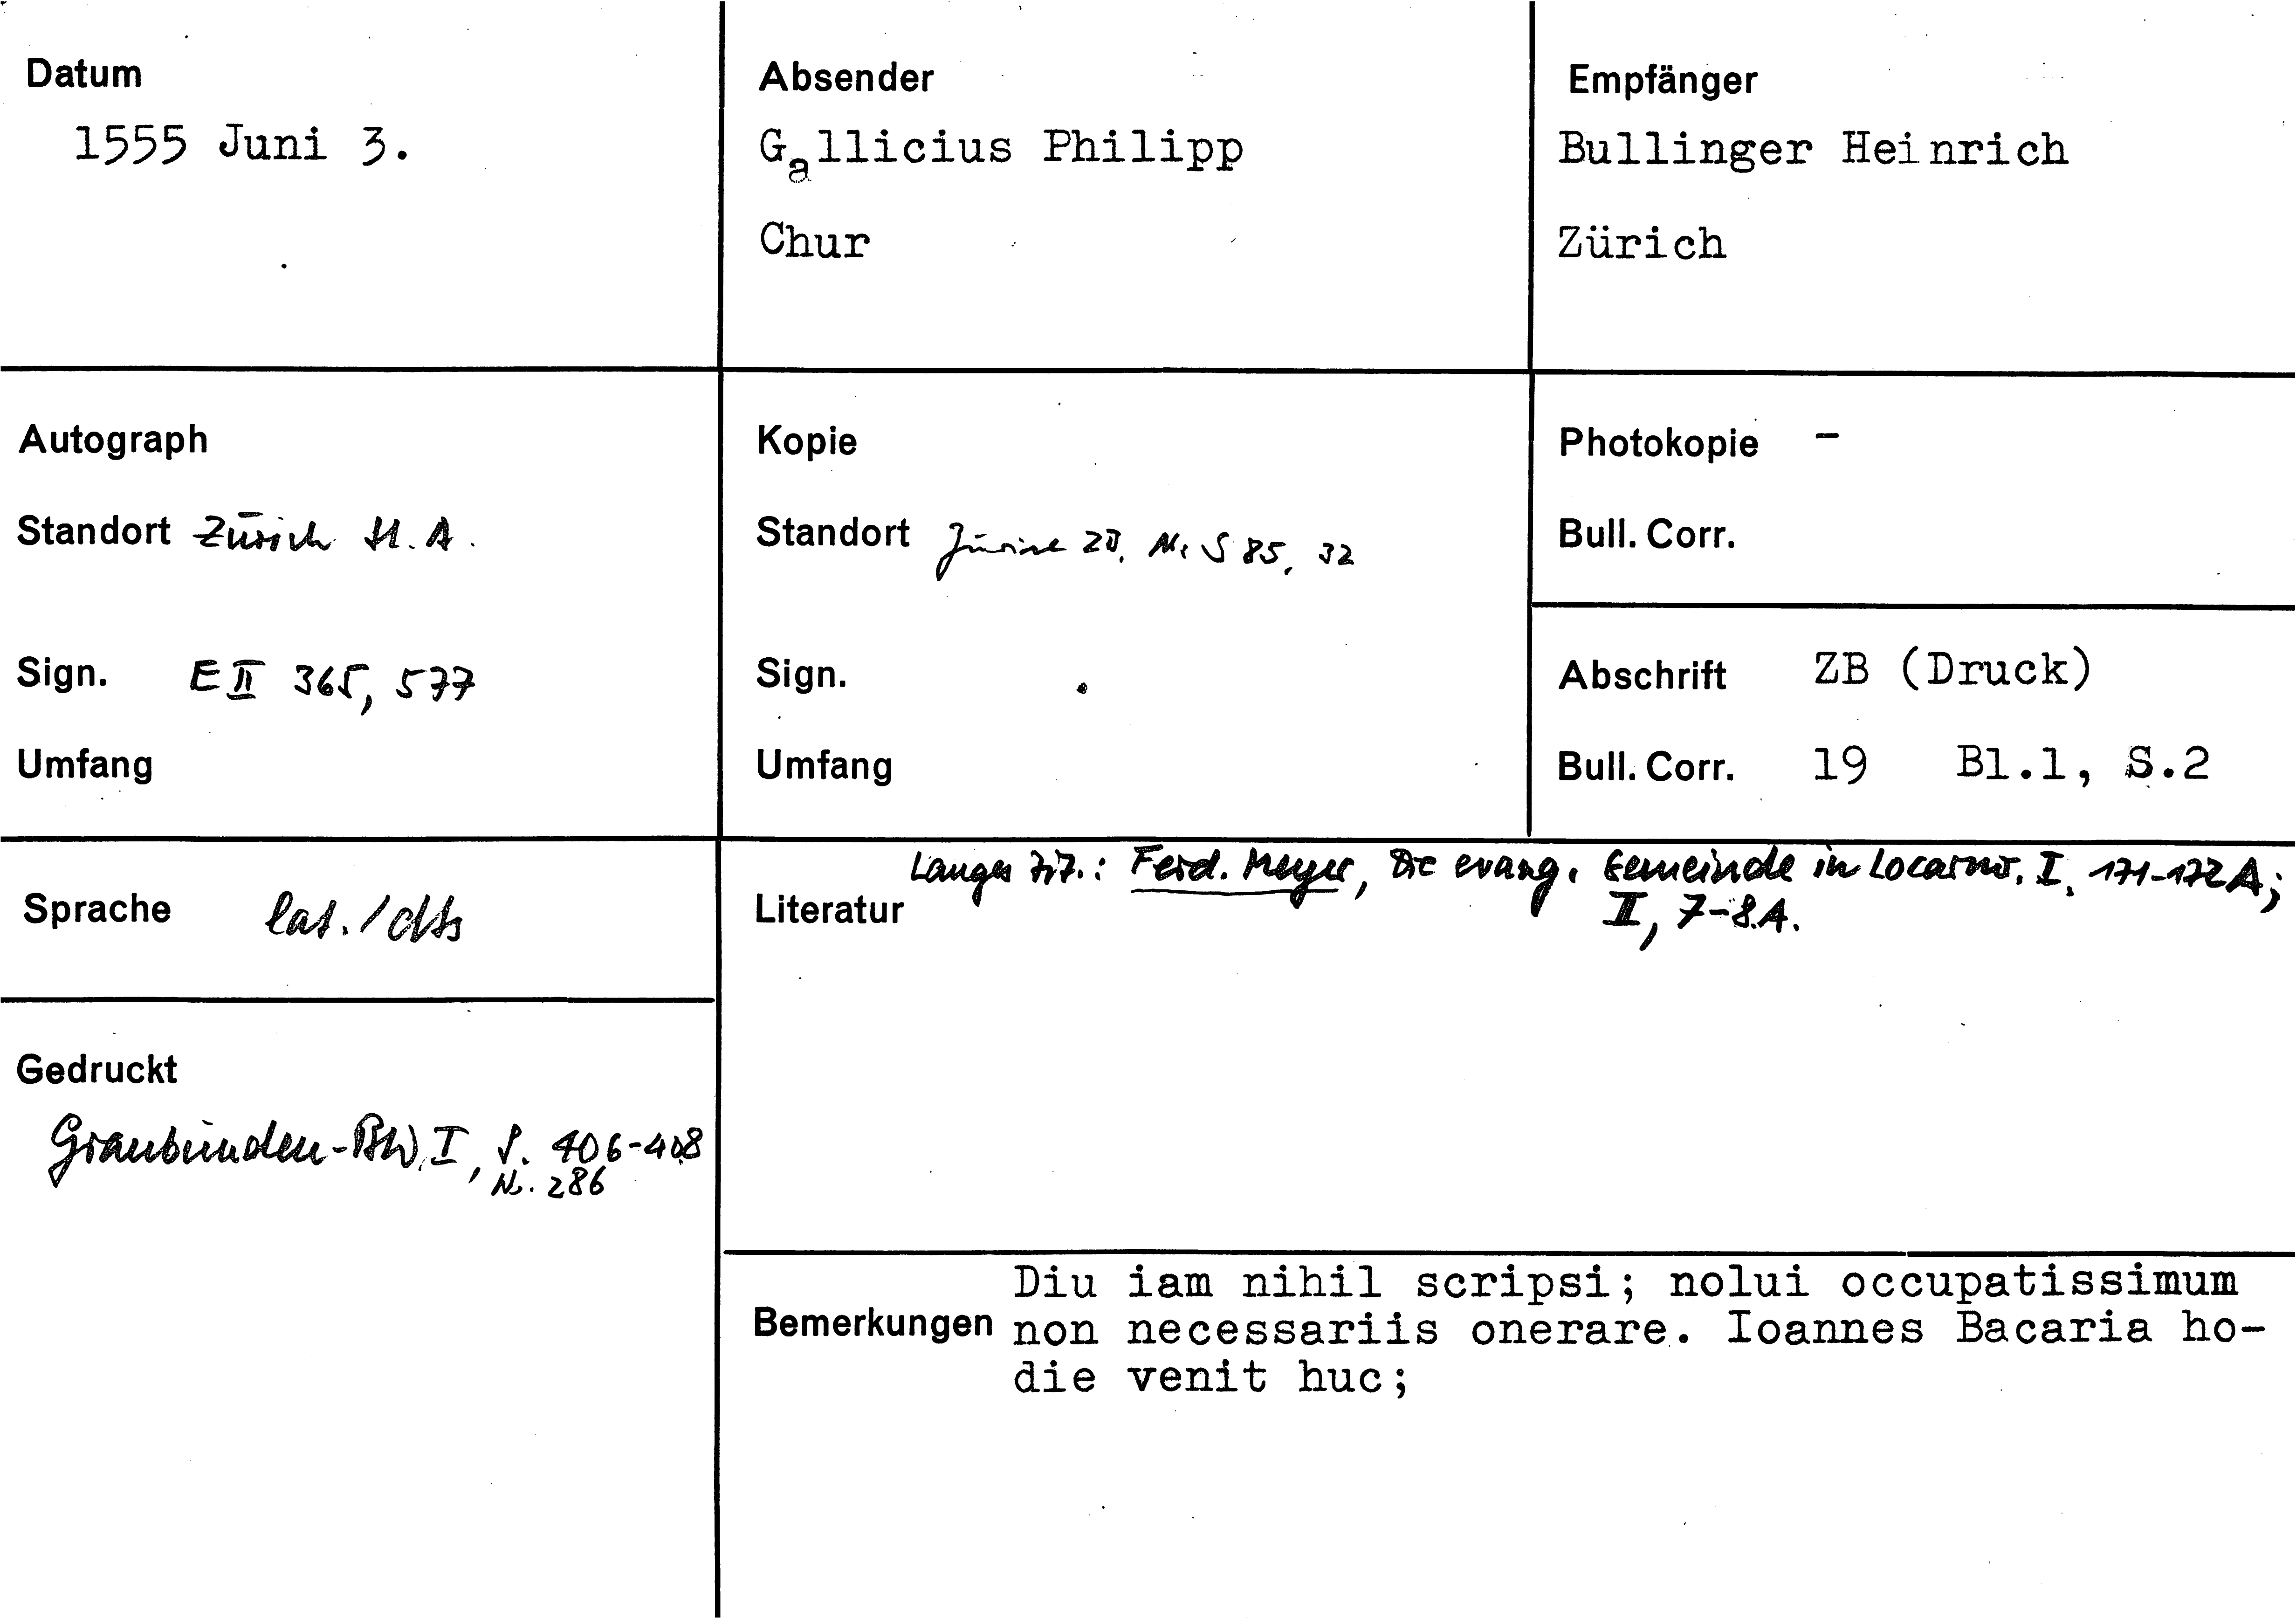 Datum
1555 Juni 3.
Absender
Gallicius Philipp
Chur
Empfänger
Bullinger Heinrich
Zürich
Autograph
Standort Zürich St. A.
Sign. E II 365, 577
Umfang
Kopie
Standort Zürich ZB, Ms S 85, 32
Sign.
Umfang
Photokopie -
Bull. Corr.
Abschrift ZB (Druck)
Bull. Corr. 19 Bl.1, S.2
Sprache lat./dts
Gedruckt
Graubünden-BW, I, S. 406-408
Nr. 286
Literatur
Langes Zit.: Ferd. Meyer, Die evang. Gemeinde in Locarno, I, 171-172 A;
II, 7-8.A.
Bemerkungen
Diu iam nihil scripsi; nolui occupatissimum
non necessariis onerare. Ioannes Bacaria ho-
die venit huc;